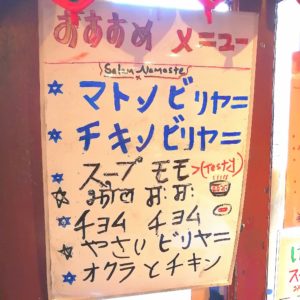 おすすめ メニュー
Salam Namaste
マトンビリヤニ
チキンビリヤニ
スープ モモ >(Tasty)
チョム チョム
やさい ビリヤニ
オクラとチキン